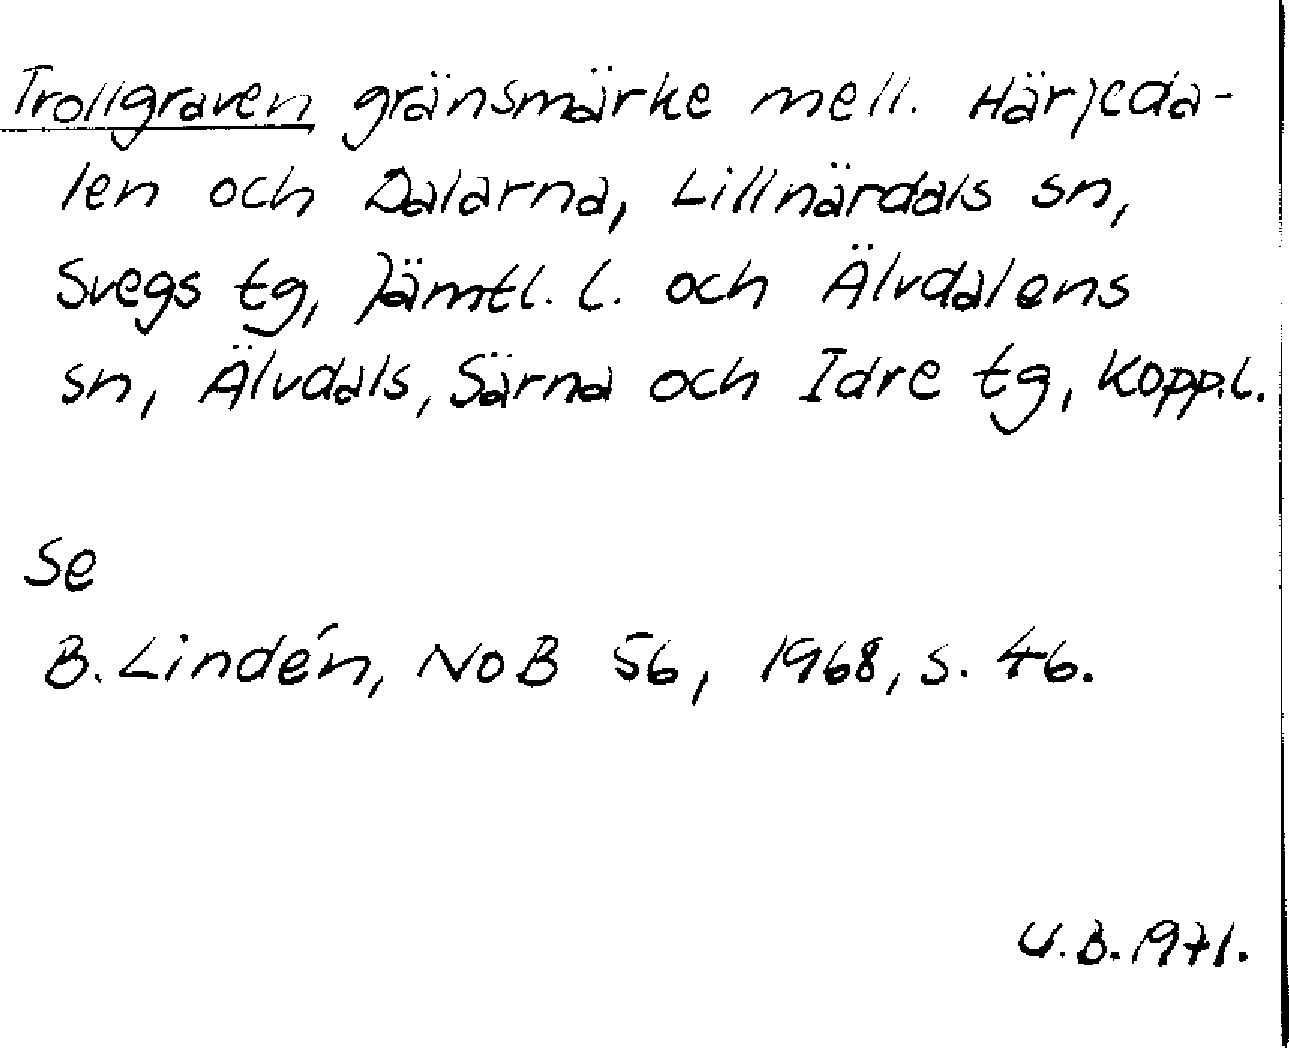 Trollgraven gränsmärke mell. Härjeda-
len och Dalarna, Lillnärdals sn,
Svegs tg, Jämtl. l. och Älvdalens
sn, Älvdals, Särna och Idre tg, Kopp.l.
Se
B. Lindén, NoB 56, 1968, s. 46.
U.B. 1971.